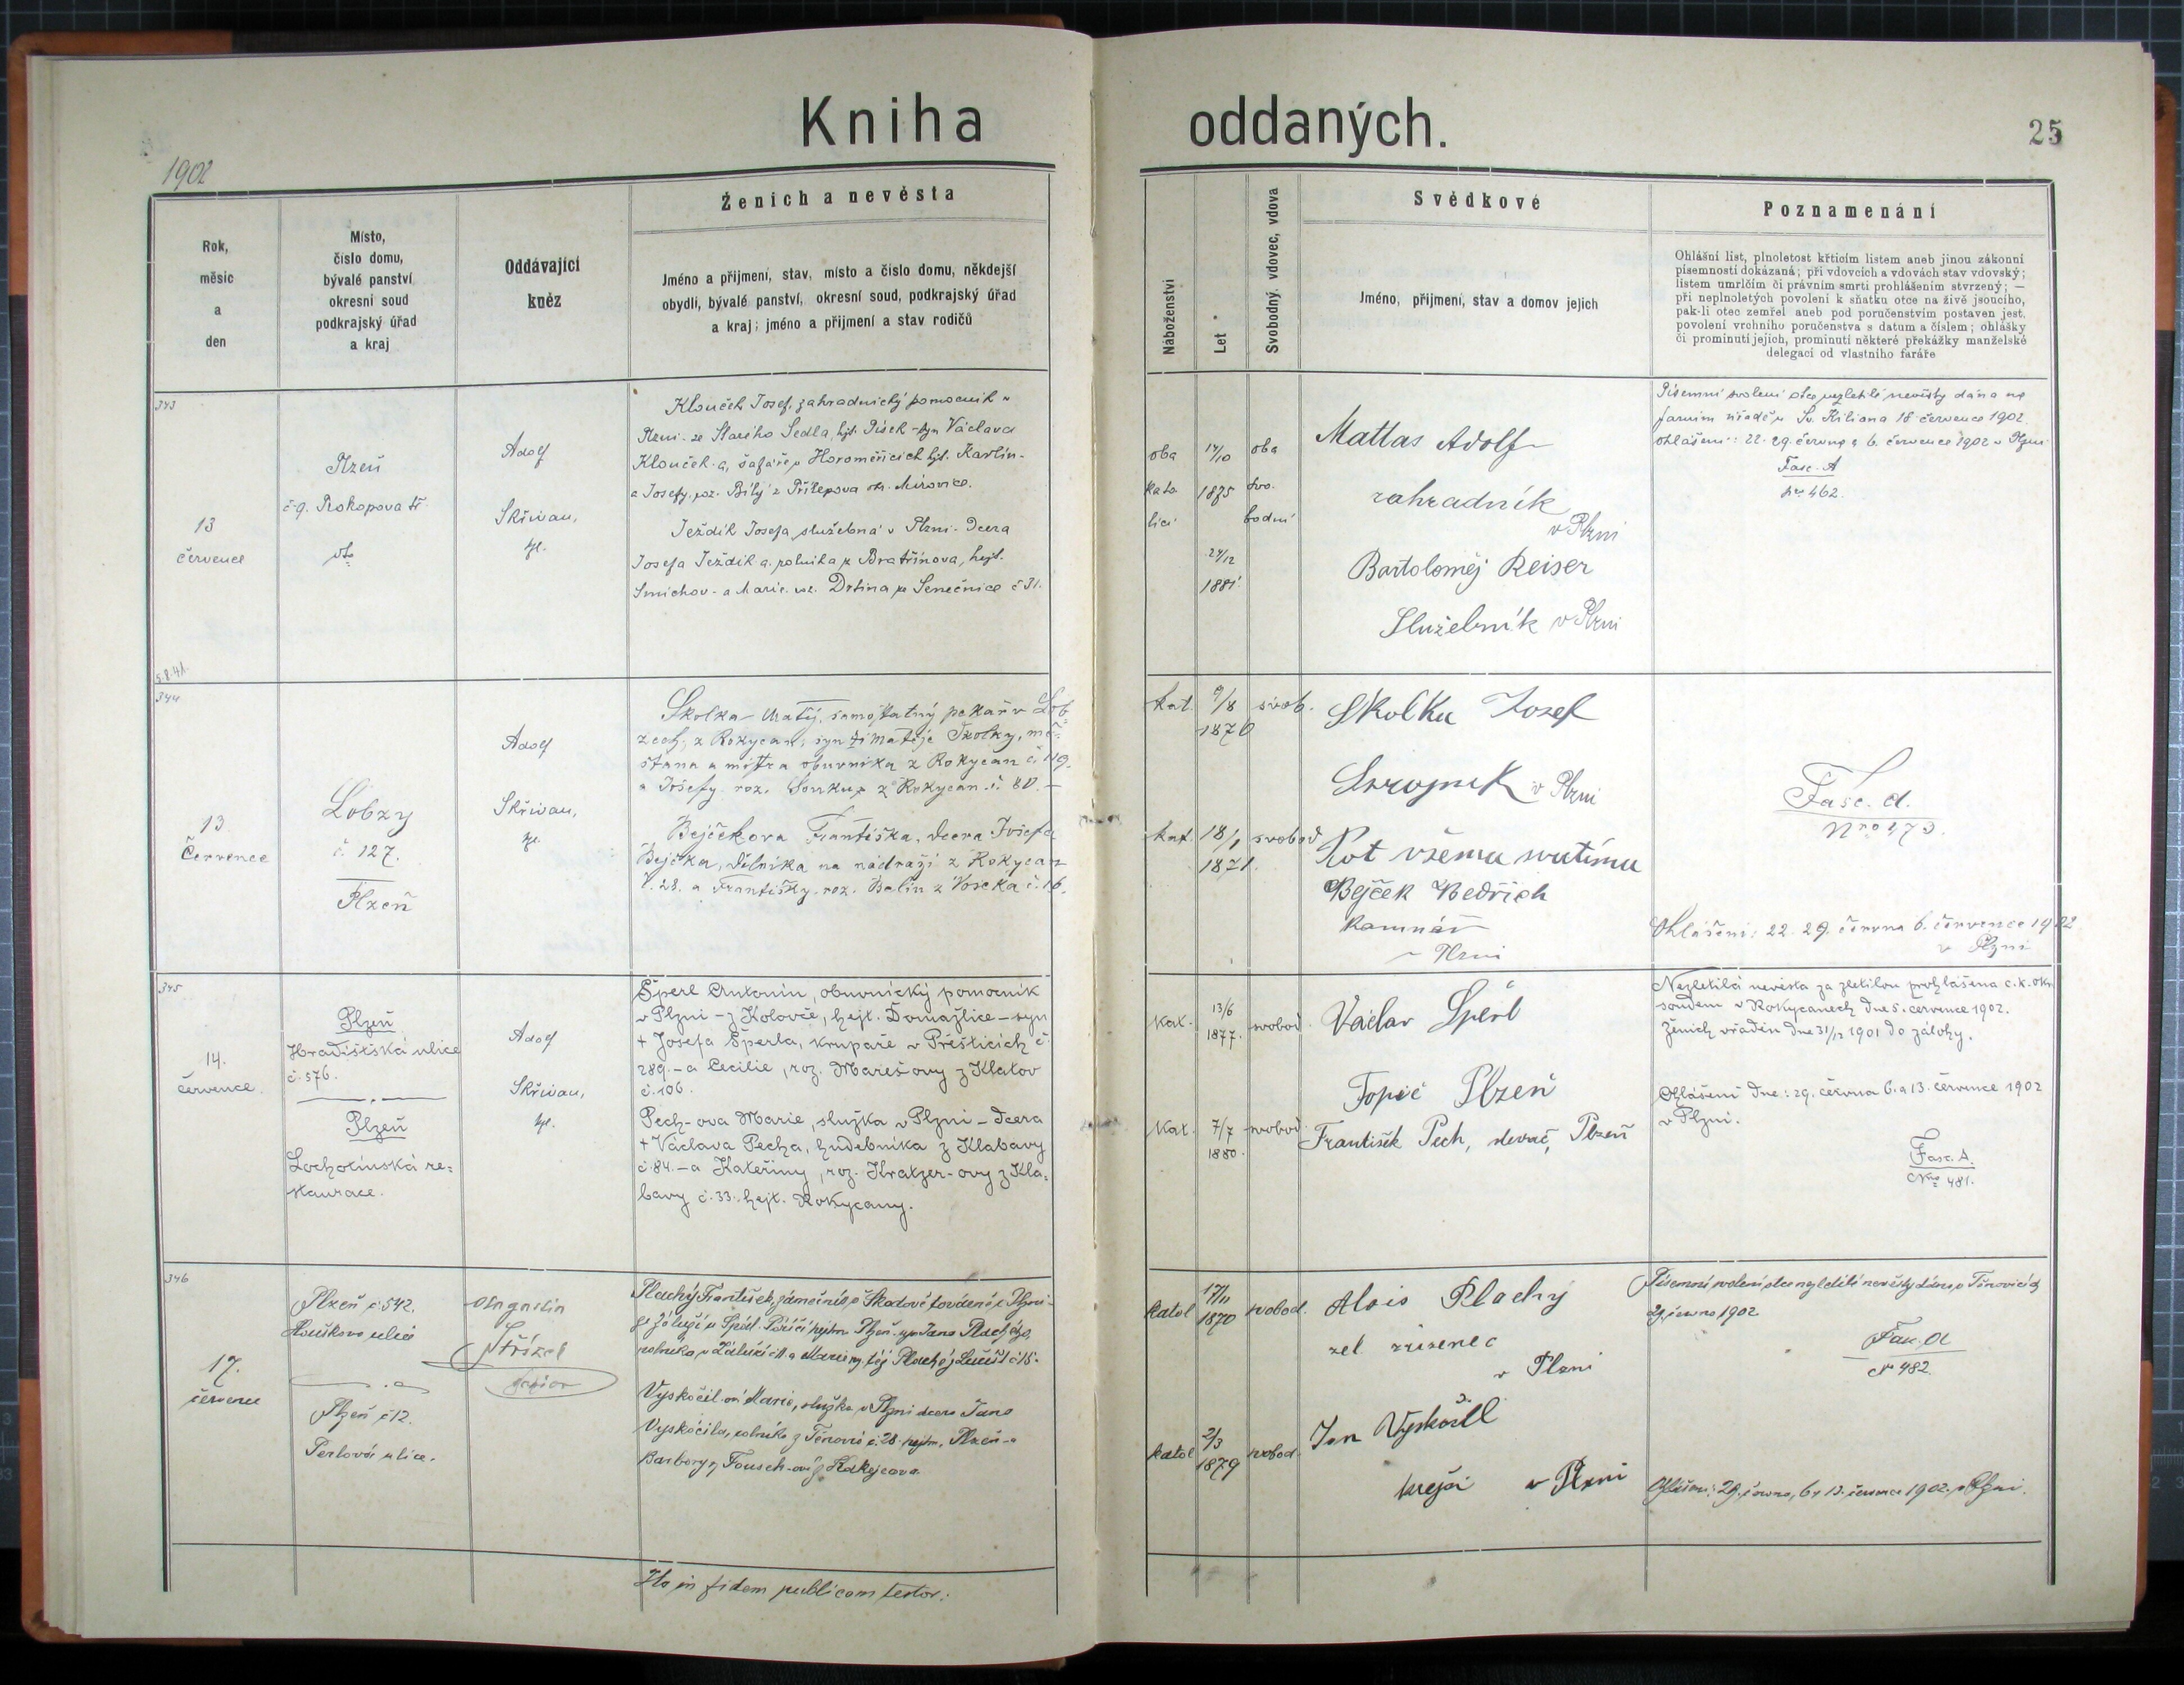 Kniha oddaných.
25
1902
Rok,
měsíc
a
den
Místo,
číslo domu,
bývalé panství
okresní soud
podkrajský úřad
a kraj
Oddávající
kněz
Ženich a nevěsta
Jméno a přijmení, stav, místo a číslo domu, někdejší
obydlí, bývalé panství, okresní soud, podkrajský úřad
a kraj; jméno a přijmení a stav rodičů
Náboženství
Let
Svobodný, vdovec, vdova
Svědkové
Jméno, přijmení, stav a domov jejich
Poznamenání
Ohlášní list, plnoletost křticím listem aneb jinou zákonní
písemností dokázaná; při vdovcích a vdovách stav vdovský;
listem umrlčím či právním smrti prohlášením stvrzený; —
při neplnoletých povolení k sňatku otce na živě jsoucího,
pak-li otec zemřel aneb pod poručenstvím postaven jest,
povolení vrchního poručenstva s datum a číslem; ohlášky
či prominutí jejich, prominutí některé překážky manželské
delegací od vlastního faráře
343
13
července
Plzeň
č. 9. Prokopova tř.
Adolf
Skřivan,
Klouček Josef, zahradnický pomocník v
Plzni - ze Starého Sedla, hjt. Písek - syn Václava
Klouček-a, šafáře v Horoměřicích hjt. Karlín -
a Josefy, roz. Bílý z Přílepova okr. Mirovice.
Ježdík Josefa, služebná v Plzni - Dcera
Josefa Ježdík-a, rolníka z Bratřínova, hejt.
Smíchov - a Marie, roz. Drtina ze Senečnice č 31.
oba
kato
lící
14/10
1875
24/12
1881
oba
svo-
bodní
Mattas Adolf
zahradník
v Plzni
Bartoloměj Reiser
Služebník v Plzni
Písemní svolení otce nezletilé nevěsty dáno na
farním úřadě u Sv. Kiliana 18 července 1902
Ohlášení: 22. 29. června a 6. července 1902 v Plzni
Fasc. A
Nro 462.
5.8.41.
344
13
Července
Lobzy
č. 127.
Plzeň
Adolf
Skřivan,
Skolka Matěj, samostatný pekař v Lob-
zech, z Rokycan, syn Matěje Školky, mě-
šťana a mistra obuvníka z Rokycan č. 119.
a Josefy roz. Soukup z Rokycan č. 80. —
Bejčkova Františka, dcera Josefa
Bejčka, dělníka na nádraží z Rokycan
č. 28. a Františky, roz. Balín z Voseka č. 16.
kat.
9/8
1870
svob.
Skolka Josef
v Plzni
kat.
18/1
1871.
svobod
Rot
Bejček Bedřich
kamnář
v Plzni
Fasc. A.
Nro 473.
Ohlášení: 22. 29. června 6. července 1902
v Plzni
345
14.
července.
Plzeň
Hradišťská ulice
č. 576.
Plzeň
Lochotínská re-
staurace.
Adolf
Skřivan,
Šperl Antonín, obuvnický pomocník
v Plzni - z Kolovče, hejt. Domažlice - syn
+ Josefa Šperla, krupaře v Přešticích č.
289. - a Cecilie, roz. Marešovy z Klatov
č. 106.
Pech-ova Marie, služka v Plzni - Dcera
+ Václava Pecha, hudebníka z Klabavy
č. 84. - a Kateřiny, roz. Kratzer-ovy z Kla-
bavy č. 33. hejt. Rokycany.
kat.
13/6
1877.
svobod.
Václav Šperl
Topič Plzeň
kat.
7/7
1880.
svobod.
František Pech, slevač, Plzeň
Nezletilá nevěsta za zletilou prohlášena c. k. okr.
soudem v Rokycanech dne 5. července 1902.
Ženich vřaděn dne 31/12 1901 do zálohy.
Ohlášení dne: 29. června 6. a 13. července 1902
v Plzni.
Fasc. A.
Nro 481.
346
17.
července
Plzeň č 542.
Houškova ulice
Plzeň č 12.
Perlová ulice.
Augustin
Střízek
Plachý František, zámečník v Škodově továrně v Plzni -
ze Záluží u Spál. Poříčí hejtm. Plzeň - syn Jana Plachého,
rolníka v Záluží č 11. a Marie
Vyskočil-ová Marie, služka v Plzni dcera Jana
Vyskočila, rolníka z Těnovic č. 28. hejtm. Plzeň - a
Barbory, Fousek-ové z
katol
17/11
1870
svobod.
Alois Plachý
žel. zřízenec
v Plzni
katol
2/3
1879
svobod.
Jan Vyskočil
krejčí v Plzni
Písemní svolení otce nezletilé nevěsty dáno v Těnovicích
29. června 1902
Fasc. A
N 482.
Ohlášení: 29. června, 6. a 13. července 1902. v Plzni.
Ita in fidem publicam testor: